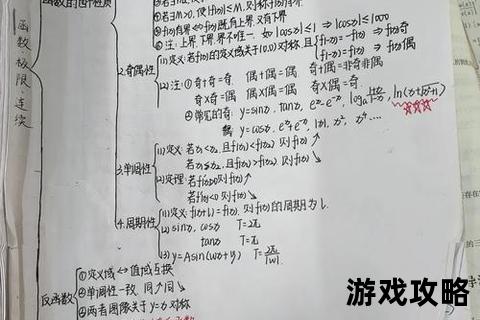 函数的四个性质
③若∃M>0, 使|f(x)|≤M, 则称f(x)有界
④f(x)有界⇔f(x)既有上界, 又有下界
⑤注: 上界、下界、界不唯一. 如 |cosx|≤1 ⇒ |cosx|≤1000
函数·极限·连续
2.奇偶性
(1)定义: 若f(x)的定义域关于(0,0)对称, 且 f(-x)=-f(x) ⇒ f(x)奇
f(-x)=f(x) ⇒ f(x)偶
(2)注: ① 奇+奇=奇 偶+偶=偶 奇+偶=非奇非偶
奇×奇=偶 偶×偶=偶 奇×偶=奇
②常见的奇: y=sinx, tanx,
偶: y=cosx, |x|, x², x⁴ ...
3.单调性
(1)定义: 若x₁<x₂, 且f(x₁)<f(x₂) 则f(x)↗
若x₁<x₂, 且f(x₁)>f(x₂) 则f(x)↘
(2)定理: 若f'(x)>0 则f(x)↗
若f'(x)<0 则f(x)↘
4.周期性
(1)定义: f(x+L)=f(x), 则f(x)的周期为L.
(2) sinx, cosx T=2π
tanx T=π
(3) y=Asin(wx+φ) T=2π/|w|
反函数
①定义域↔值域互换
②单调性一致 同↗同↘
④两者图像关于y=x对称
游戏攻略